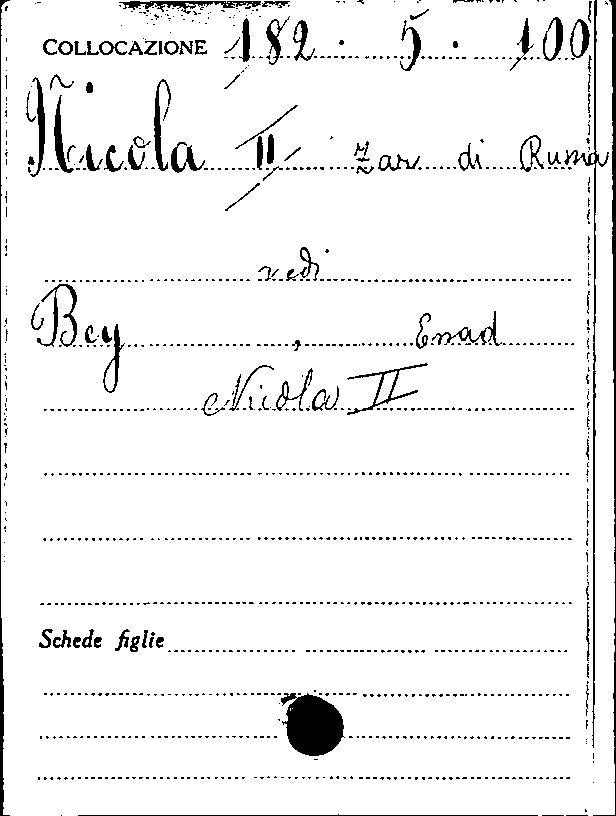 COLLOCAZIONE 182 . 5 . 100
Nicola II zar di Russia
vedi
Bey , Essad
Nicola II
Schede figlie